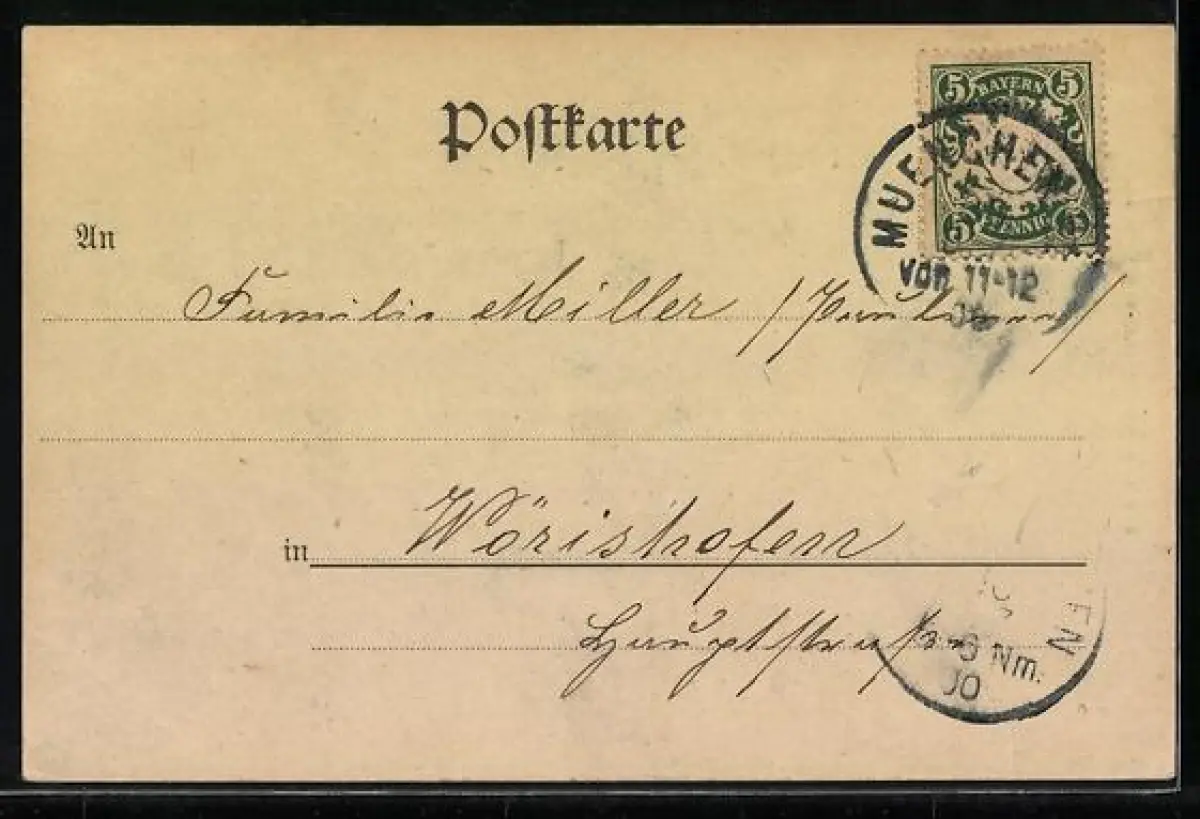 Postkarte
5 BAYERN 5
5 PFENNIG 5
MUENCHEN
VOR 11-12
An
Familie Miller
in Wörishofen
Hauptstrasse
EN
Nm.
00